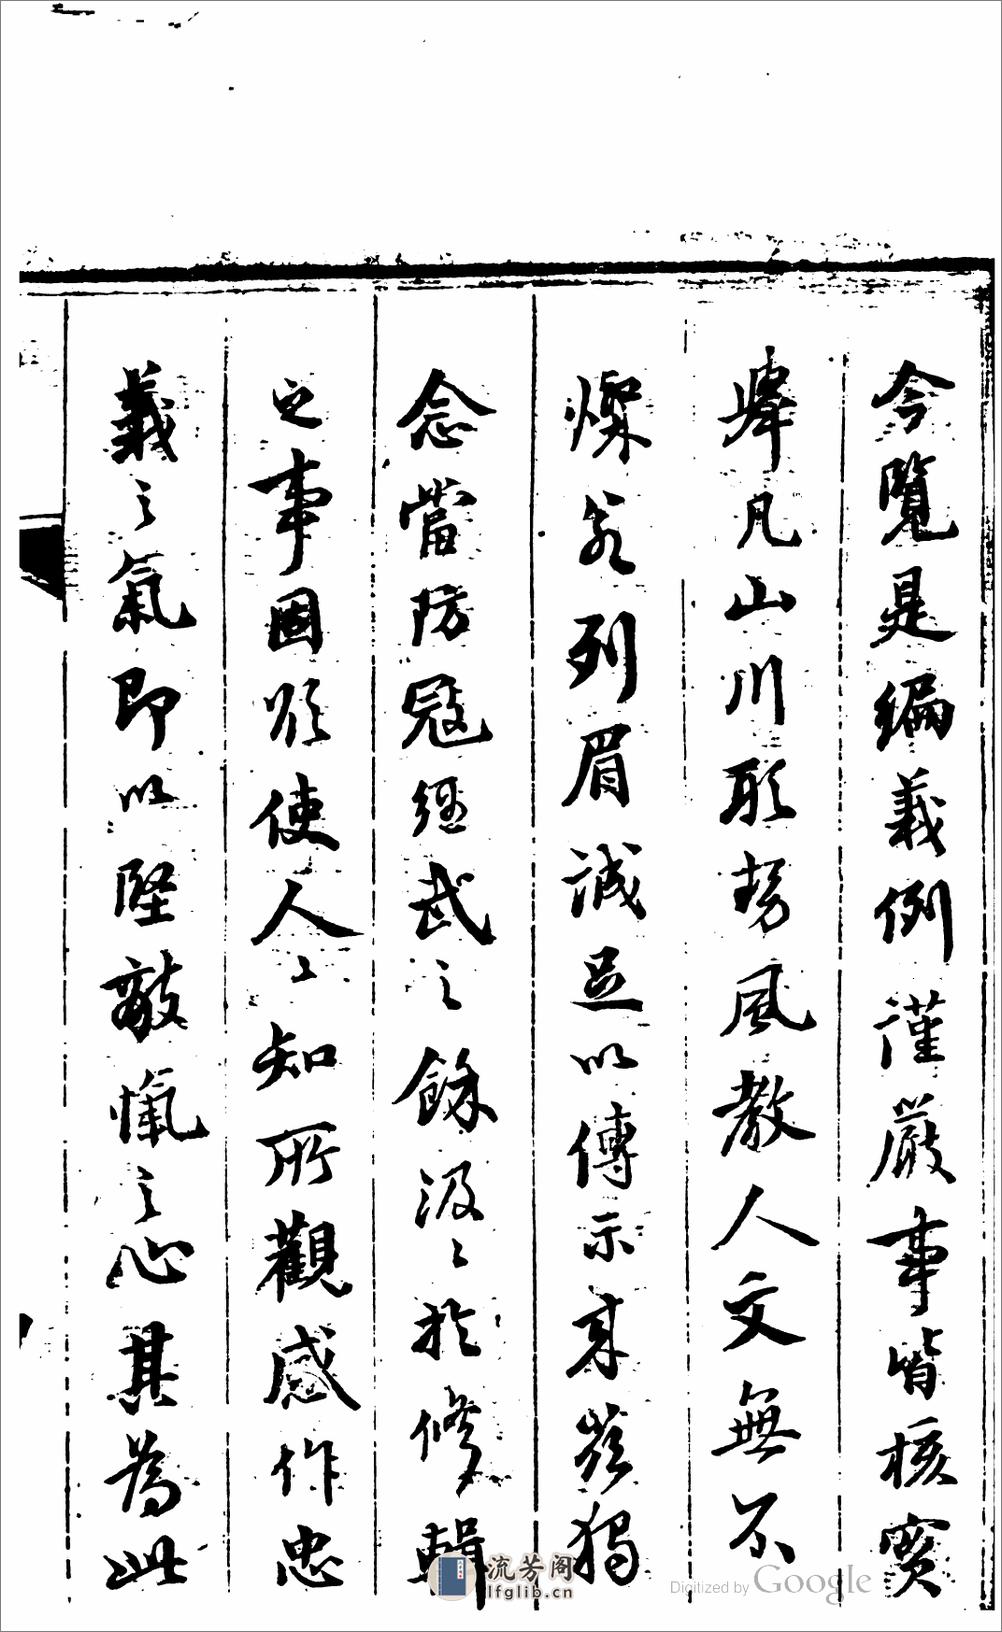 今覽是編義例謹嚴事皆核實
牽凡山川形勢風教人文無不
燦若列眉誠足以傳示來茲獨
念當防寇經武之餘汲〻於修輯
之事固欲使人〻知所觀感作忠
義之氣即以堅敵愾之心其為此
流芳阁
lfglib.cn
Digitized by Google